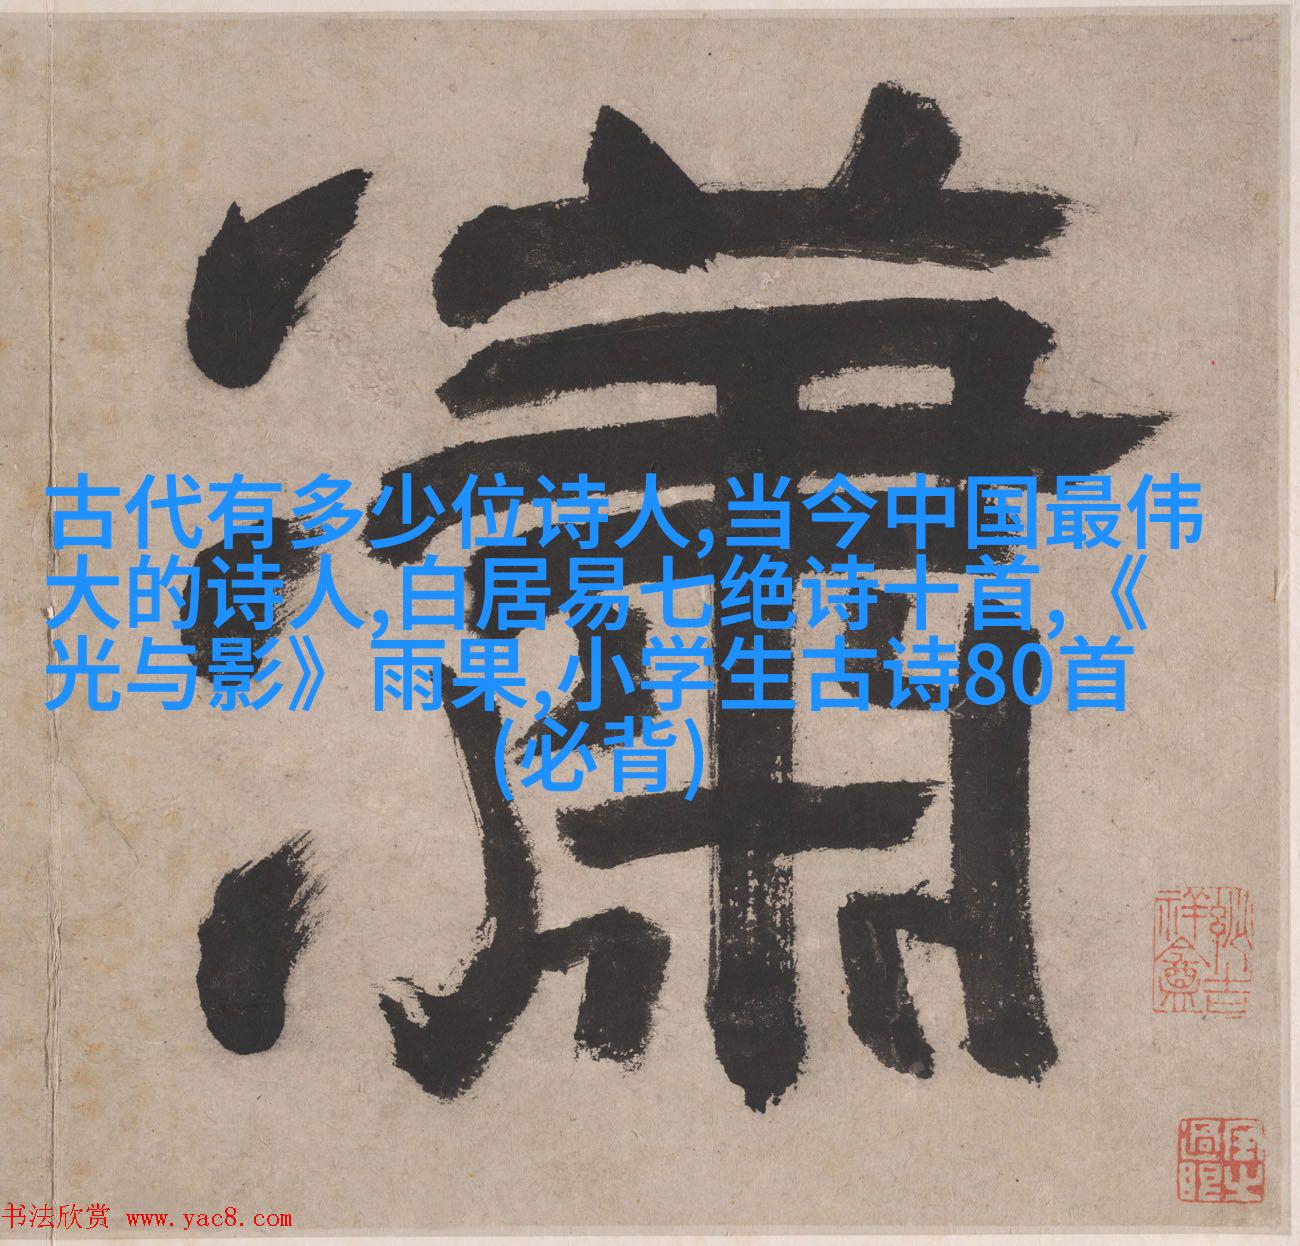 潇
古代有多少位诗人,当今中国最伟
大的诗人,白居易七绝诗十首,《
光与影》雨果,小学生古诗80首
(必背)
书法欣赏 www.yac8.com